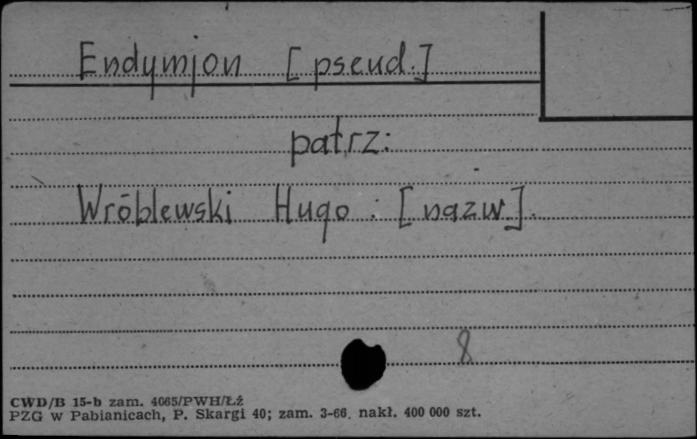 Endymjon [pseud.]
patrz:
Wróblewski Hugo : [nazw].
8
CWD/B 15-b zam. 4065/PWH/Łź
PZG w Pabianicach, P. Skargi 40; zam. 3-66. nakł. 400 000 szt.